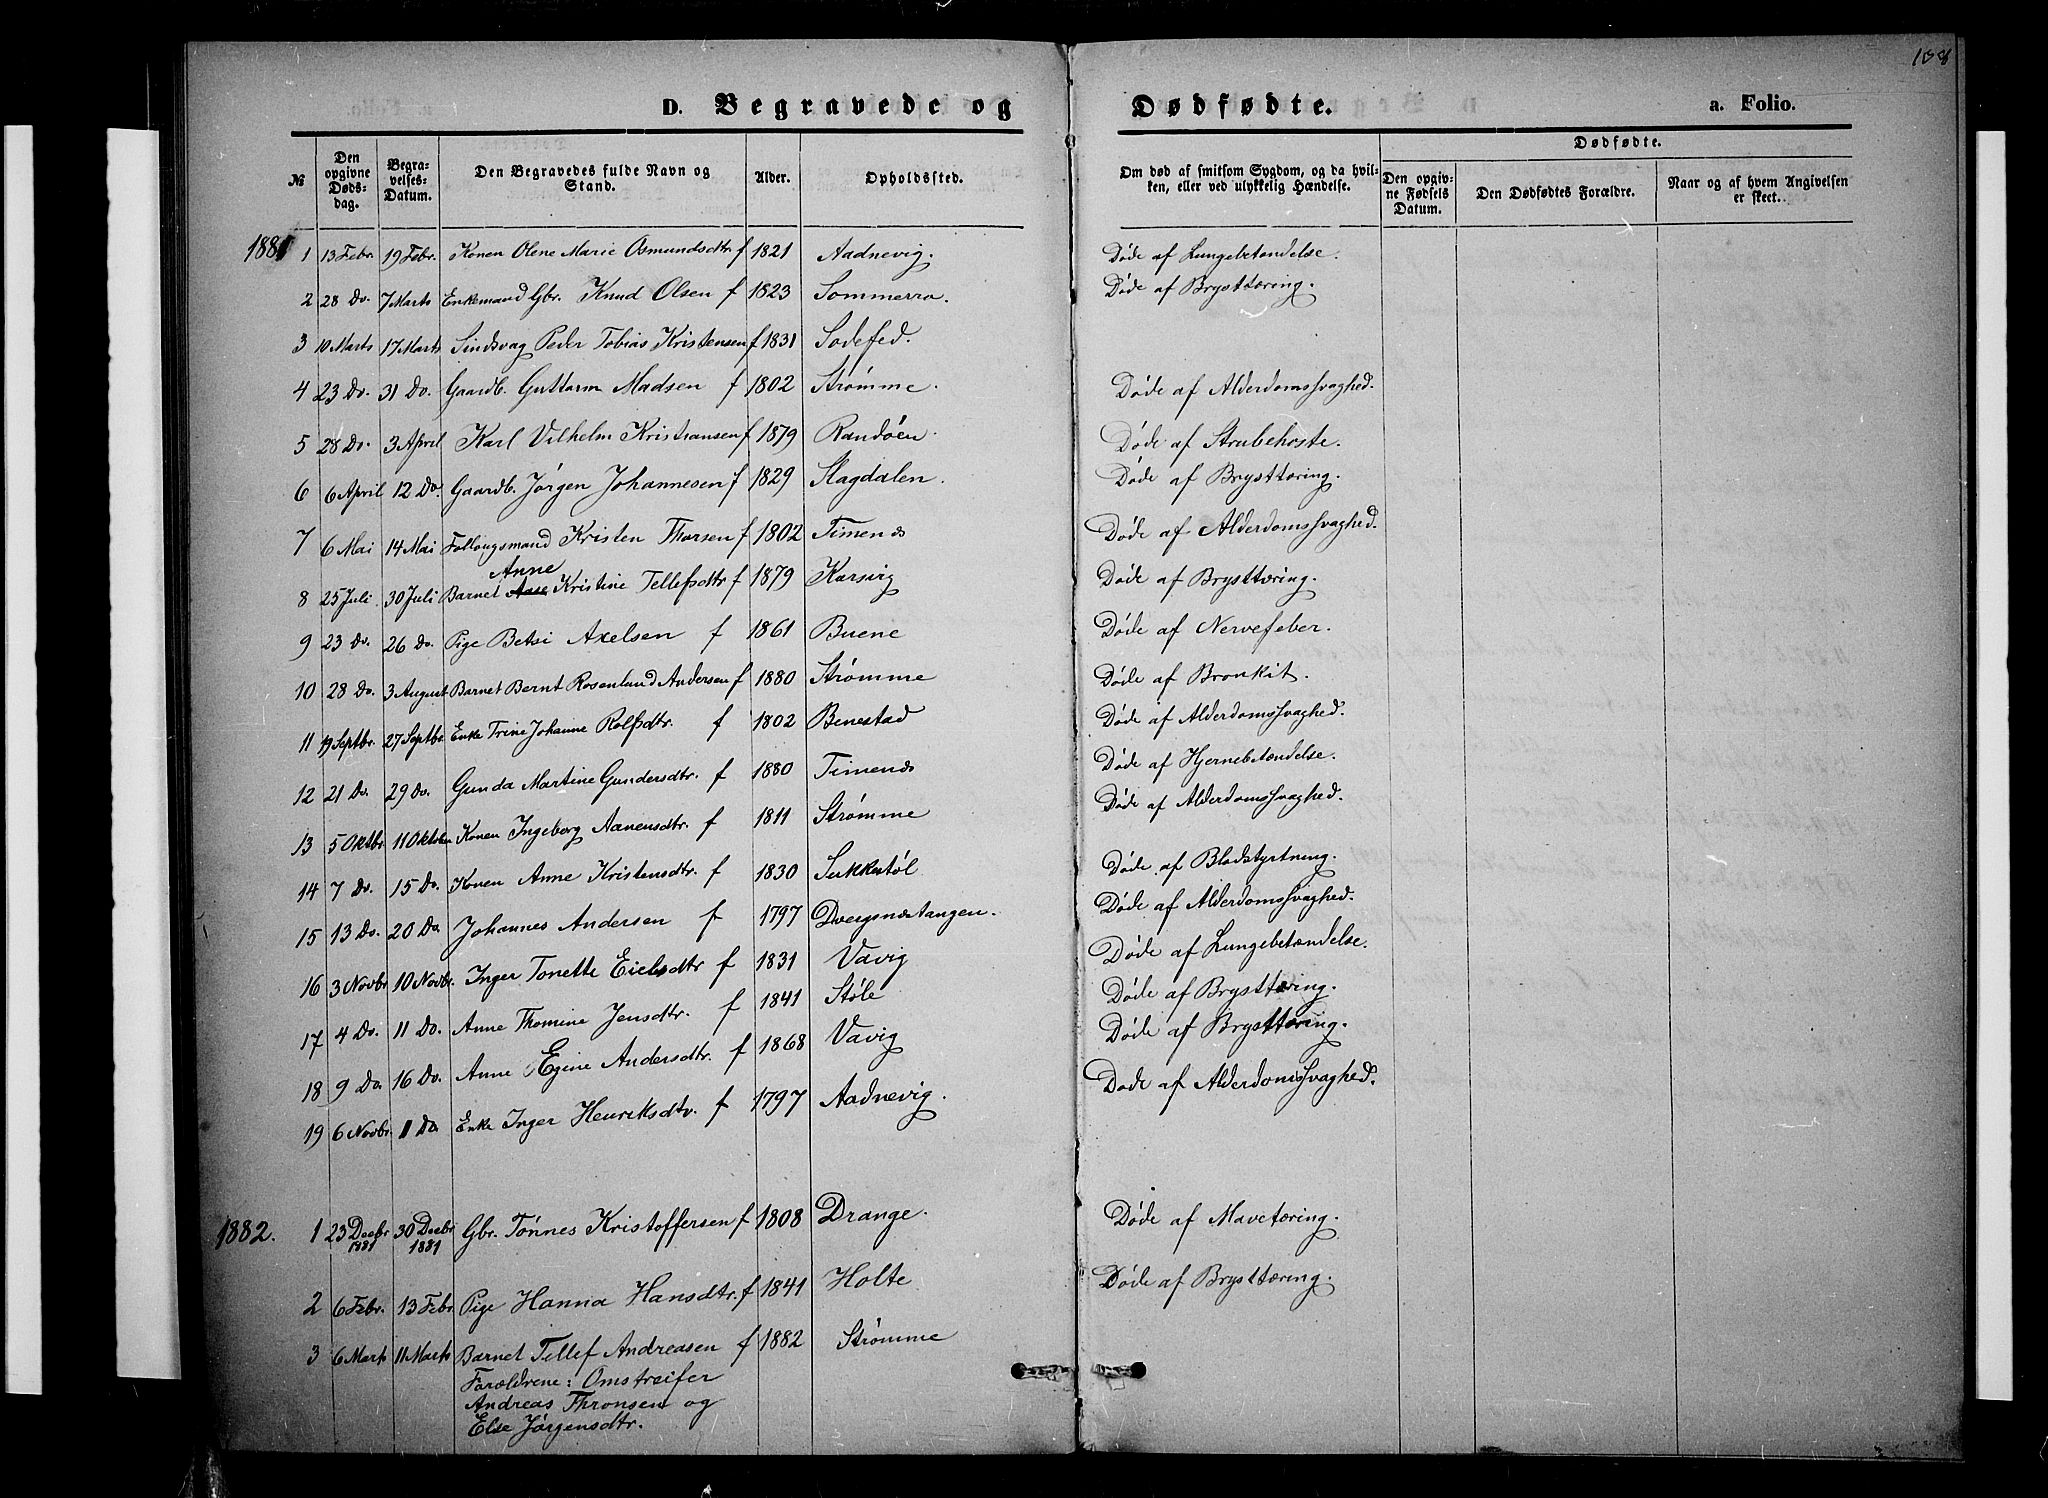 108
D. Begravede og Dødfødte. a. Folio.
№ Den opgivne Døds-dag. Begra-velses-Datum. Den Begravedes fulde Navn og Stand. Alder. Opholdssted. Om død af smitsom Sygdom, og da hvil-ken, eller ved ulykkelig Hændelse. Dødfødte. Den opgiv-ne Fødsels Datum. Den Dødfødtes Forældre. Naar og af hvem Angivelsen er skeet.
1881 1 13 Febr. 19 Febr. Konen Olene Marie Osmundsdtr f 1821 Aadnevig. Døde af Lungebetændelse.
2 28 Do. 7 Marts Enkemand Gbr. Knud Olsen f 1823 Sommerro. Døde af Brysttæring.
3 10 Marts 17 Marts Sindsvag Peder Tobias Kristensen f 1831 Sodefed.
4 23 Do. 31 Do. Gaardb. Guttorm Madsen f 1802 Strømme. Døde af Alderdomssvaghed.
5 28 Do. 3 April Karl Vilhelm Kristiansen f 1879 Randøen. Døde af Strubehoste.
6 6 April 12 Do. Gaardb. Jørgen Johannesen f 1829 Slagdalen. Døde af Brysttæring.
7 6 Mai 14 Mai Følougsmand Kristen Thorsen f 1802 Timenes Døde af Alderdomssvaghed.
Anne
8 25 Juli 30 Juli Barnet Aase Kristine Tellefsdtr f 1879 Korsvig Døde af Brysttæring.
9 23 Do. 26 Do. Pige Betsi Axelsen f 1861 Buene Døde af Nervefeber.
10 28 Do. 3 August Barnet Bernt Rosenlund Andersen f 1880 Strømme Døde af Bronkit.
11 19 Septbr. 27 Septbr. Enke Trine Johanne Rolfsdtr. f 1802 Benestad Døde af Alderdomssvaghed.
12 21 Do. 29 Do. Gunda Martine Gundersdtr. f 1880 Timenes Døde af Hjernebetændelse.
13 5 Oktbr. 11 Oktober Konen Ingeborg Aanensdtr. f 1811 Strømme Døde af Alderdomssvaghed.
14 7 Do. 15 Do. Konen Anne Kristensdtr. f 1830 Sukketøl Døde af Blodstyrtning.
15 13 Do. 20 Do. Johannes Andersen f 1797 Dvergsnestangen. Døde af Alderdomssvaghed.
16 3 Novbr 10 Novbr. Inger Tonette Eielsdtr f 1831 Vavig Døde af Lungebetændelse.
17 4 Do. 11 Do. Anne Thomine Jensdtr. f 1841 Støle Døde af Brysttæring.
18 9 Do. 16 Do. Anne Egine Andersdtr. f 1868 Vavig Døde af Brysttæring.
19 6 Novbr. 11 Do. Enke Inger Henriksdtr. f 1797 Aadnevig. Døde af Alderdomssvaghed.
1882. 1 23 Decbr 1881 30 Decbr 1881 Gbr. Tønnes Kristoffersen f 1808 Drange. Døde af Mavetæring.
2 6 Febr. 13 Febr. Pige Hanna Hansdtr. f 1841 Holte Døde af Brysttæring.
3 6 Marts 11 Marts Barnet Tellef Andreasen f 1882 Strømme
Forældrene: Omstreifer
Andreas Thronsen og
Else Jørgensdtr.